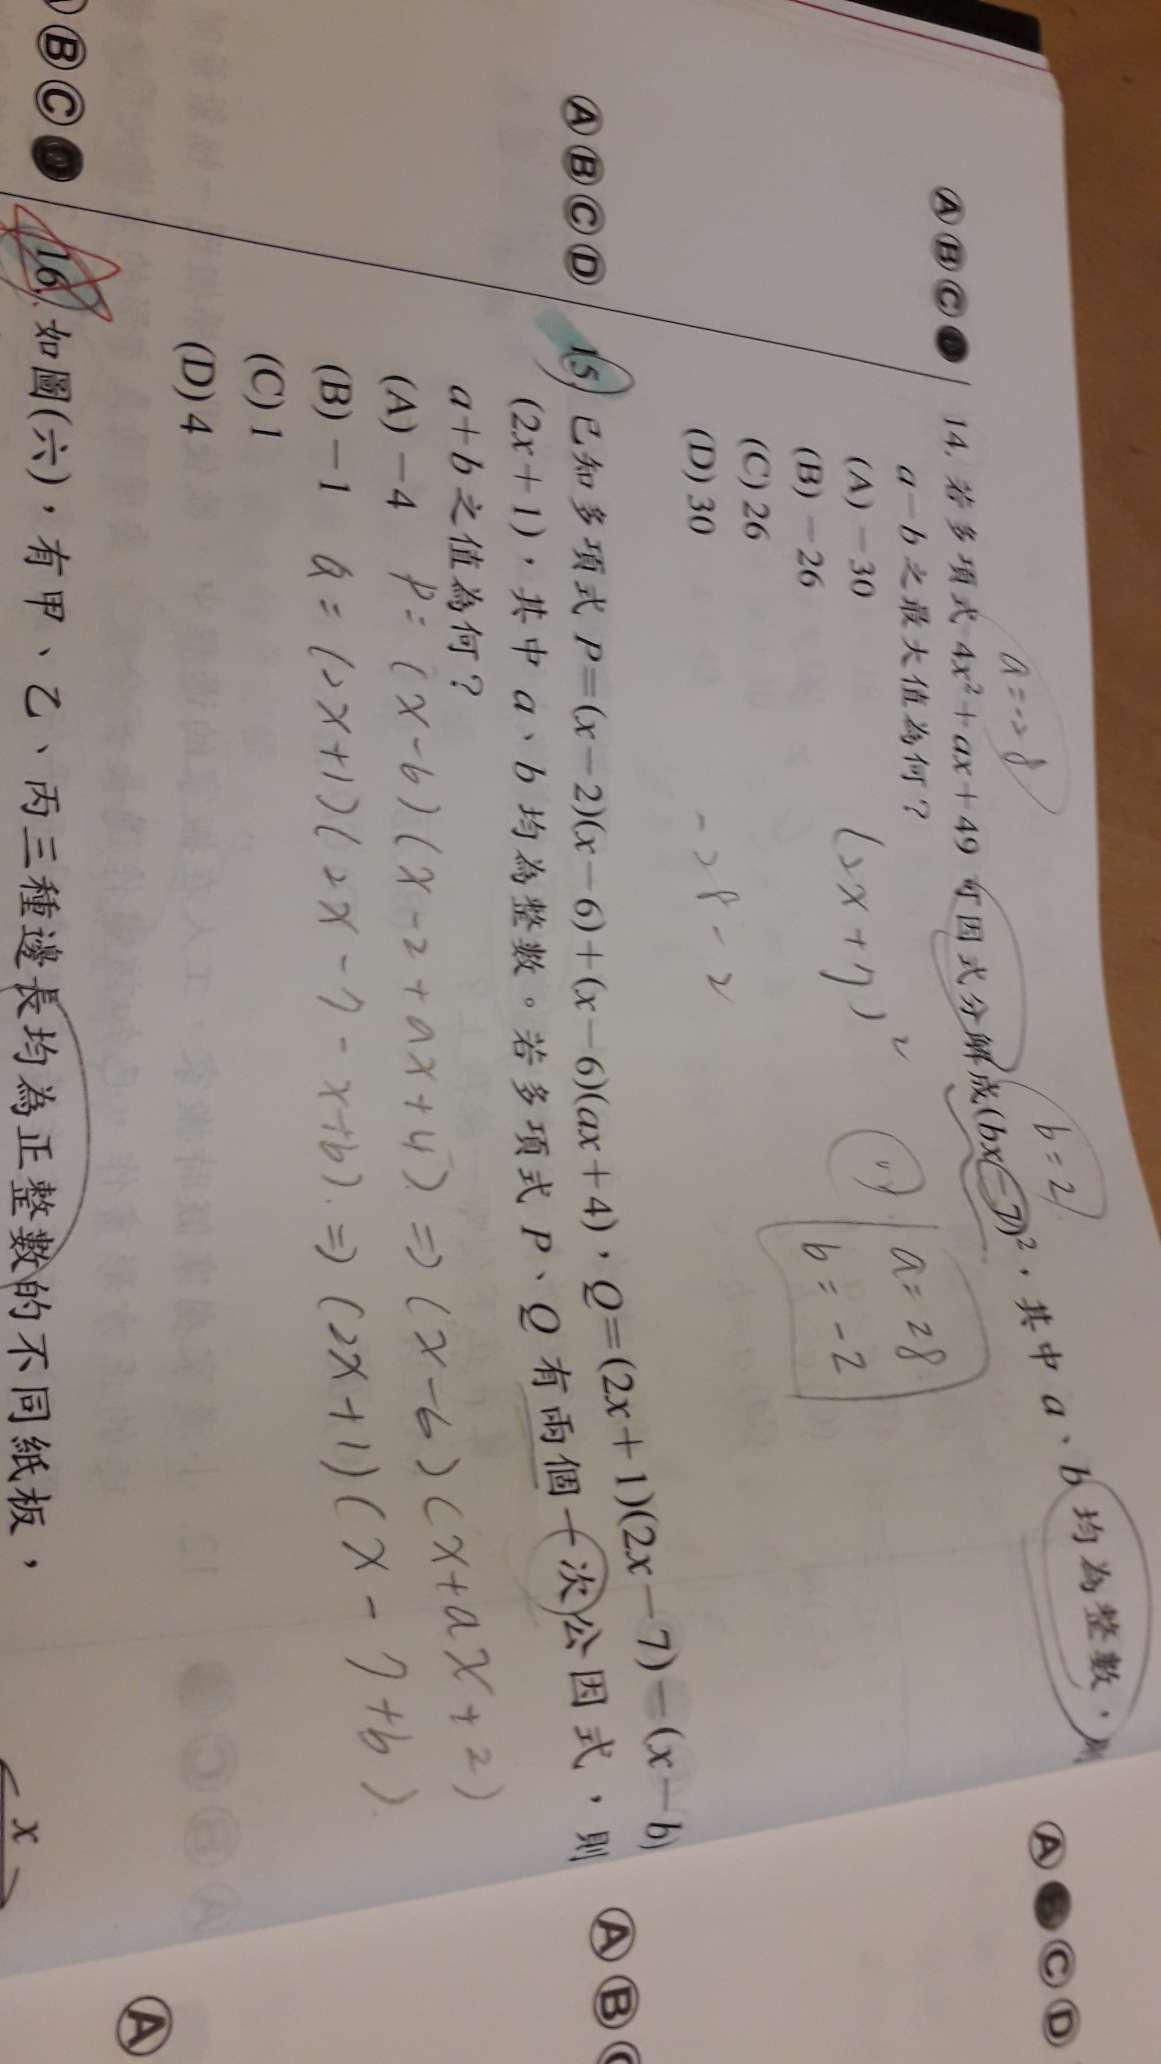 a=-28
b=2
ⒶⒷⒸ
14. 若多項式 4x²+ax+49 可因式分解成(bx-7)²,其中 a、b 均為整數,則
a-b 之最大值為何?
(A) -30
(B) -26
(C) 26
(D) 30
(2x+7)²
a=28
b=-2
-28-2
ⒶⒷⒸⒹ
15. 已知多項式 P=(x-2)(x-6)+(x-6)(ax+4),Q=(2x+1)(2x-7)-(x-b)
(2x+1),其中 a、b 均為整數。若多項式 P、Q 有兩個一次公因式,則
a+b 之值為何?
(A) -4
(B) -1
(C) 1
(D) 4
P=(x-6)(x-2+ax+4) ⇒ (x-6)(x+ax+2)
Q=(2x+1)(2x-7-x+b) ⇒ (2x+1)(x-7+b)
ⒷⒸ
16. 如圖(六),有甲、乙、丙三種邊長均為正整數的不同紙板,
x
Ⓐ ⒸⒹ
ⒶⒷ
Ⓐ